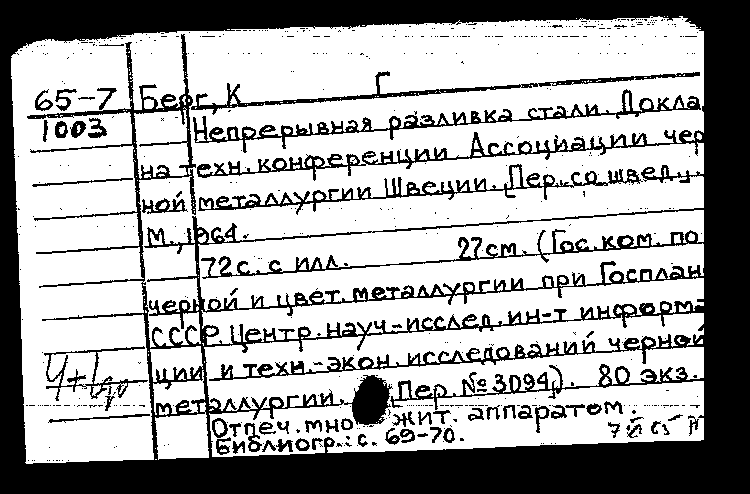 Г
65-7 Берг, К
1003 Непрерывная разливка стали. Докла
на техн. конференции Ассоциации чер
ной металлургии Швеции. [Пер. со швед.].
М., 1964.
72 с. с илл. 27 см. (Гос. ком. по
черной и цвет. металлургии при Госплан
СССР. Центр. науч.-исслед. ин-т информа
ции и техн.-экон. исследований черной
металлургии. Пер. №3094). 80 экз.
Отпеч. мно жит. аппаратом.
Библиогр.: с. 69-70.